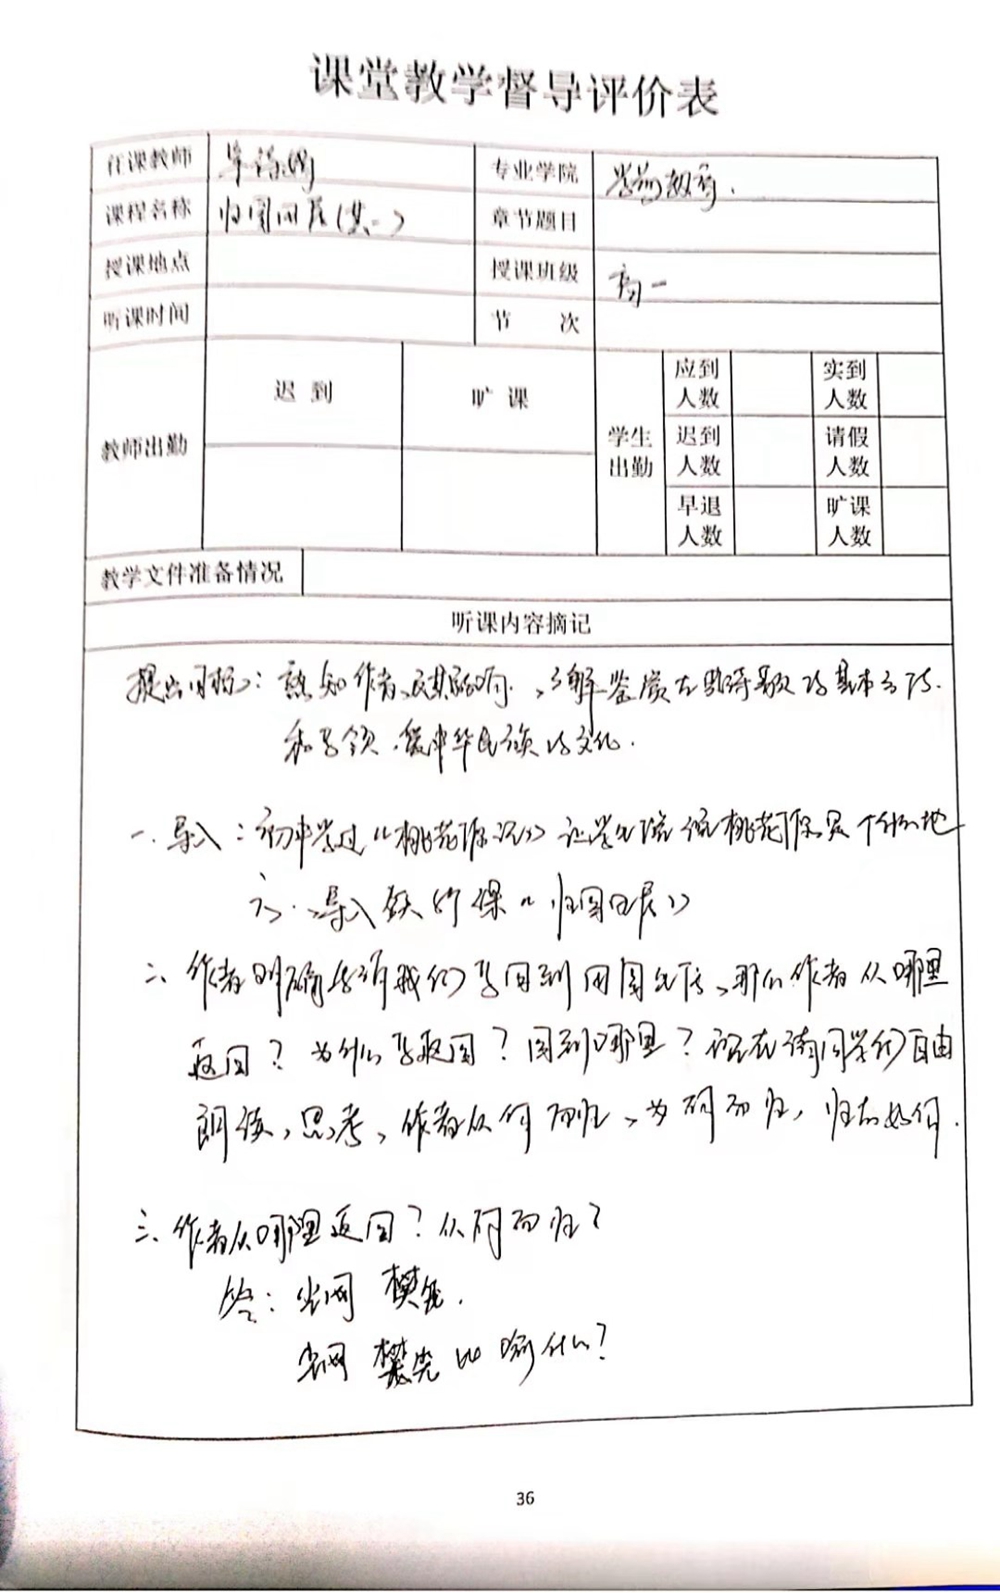 课堂教学督导评价表
任课教师
专业学院
课程名称 归园田居(其一)
章节题目
授课地点
授课班级 高一
听课时间
节 次
教师出勤
迟 到
旷 课
学生出勤
应到人数
实到人数
迟到人数
请假人数
早退人数
旷课人数
教学文件准备情况
听课内容摘记
提出目标:熟知作者及其影响、了解鉴赏古典诗歌的基本方法.
和 中华民族的文化.
一.导入:初中学过《桃花源记》让学生 桃花源是个什么地
方.、导入 课《归园田居》
二、作者明确告诉我们要回到田园生活、那么作者从哪里
返回?为什么要返回?回到哪里?现在请同学们自由
朗读,思考,作者从何而归、为何而归,归去如何.
三、作者从哪里返回?从何而归?
答:尘网 樊笼.
尘网 樊笼比喻什么?
36